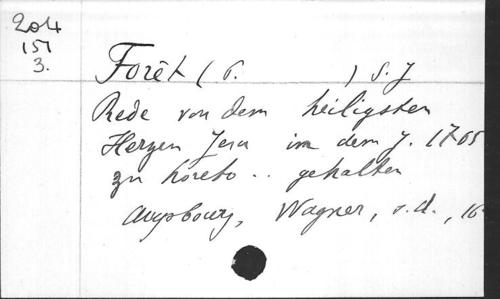 204
151
3.
Forêt (P. ) S. J
Rede von dem heiligsten
Herzen Jesu im dem J. 1765
zu Loreto .. gehalten
Augsbourg, Wagner, s. d., 16